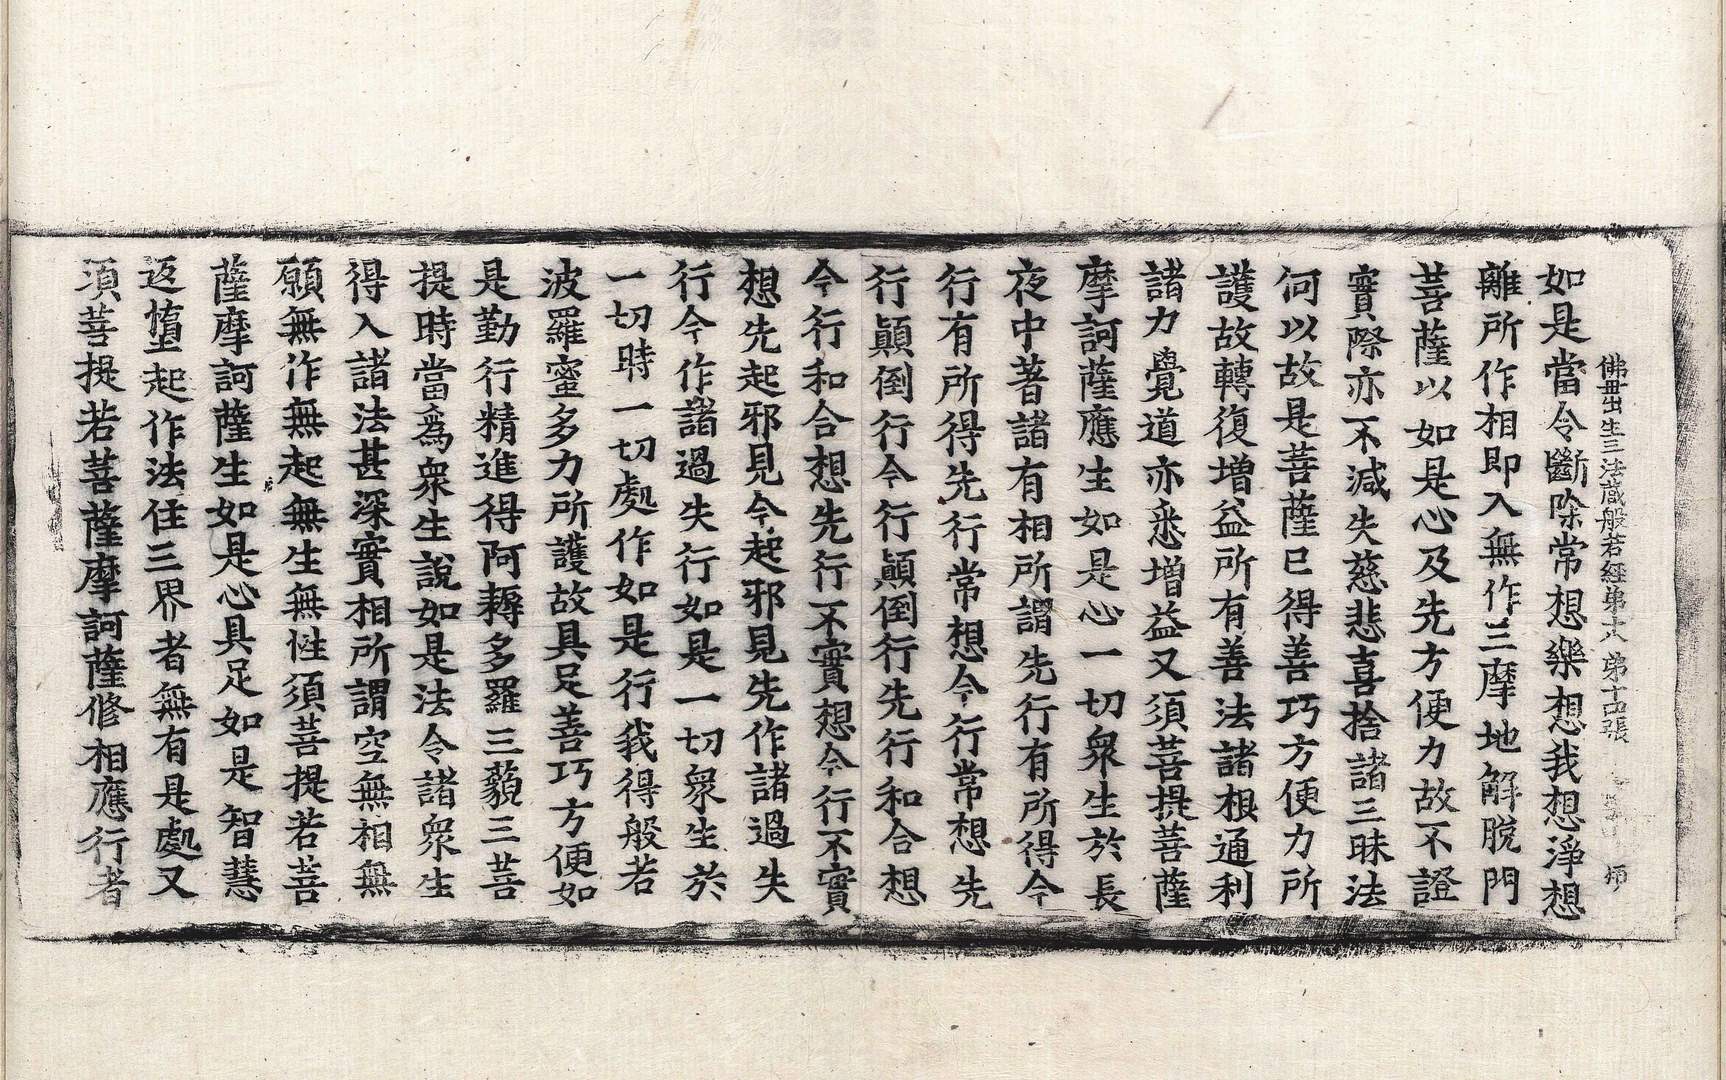 佛毋出生三法藏般若經第十八　第十四張　　師
如是當令斷除常想樂想我想淨想
離所作相即入無作三摩地解脫門
菩薩以如是心及先方便力故不證
實際亦不減失慈悲喜捨諸三昧法
何以故是菩薩已得善巧方便力所
護故轉復增益所有善法諸根通利
諸力覺道亦悉增益又須菩提菩薩
摩訶薩應生如是心一切衆生於長
夜中著諸有相所謂先行有所得今
行有所得先行常想今行常想先
行顚倒行今行顚倒行先行和合想
今行和合想先行不實想今行不實
想先起邪見今起邪見先作諸過失
行今作諸過失行如是一切衆生於
一切時一切處作如是行我得般若
波羅蜜多力所護故具足善巧方便如
是勤行精進得阿耨多羅三藐三菩
提時當爲衆生說如是法令諸衆生
得入諸法甚深實相所謂空無相無
願無作無起無生無性須菩提若菩
薩摩訶薩生如是心具足如是智慧
返墮起作法住三界者無有是處又
須菩提若菩薩摩訶薩修相應行者